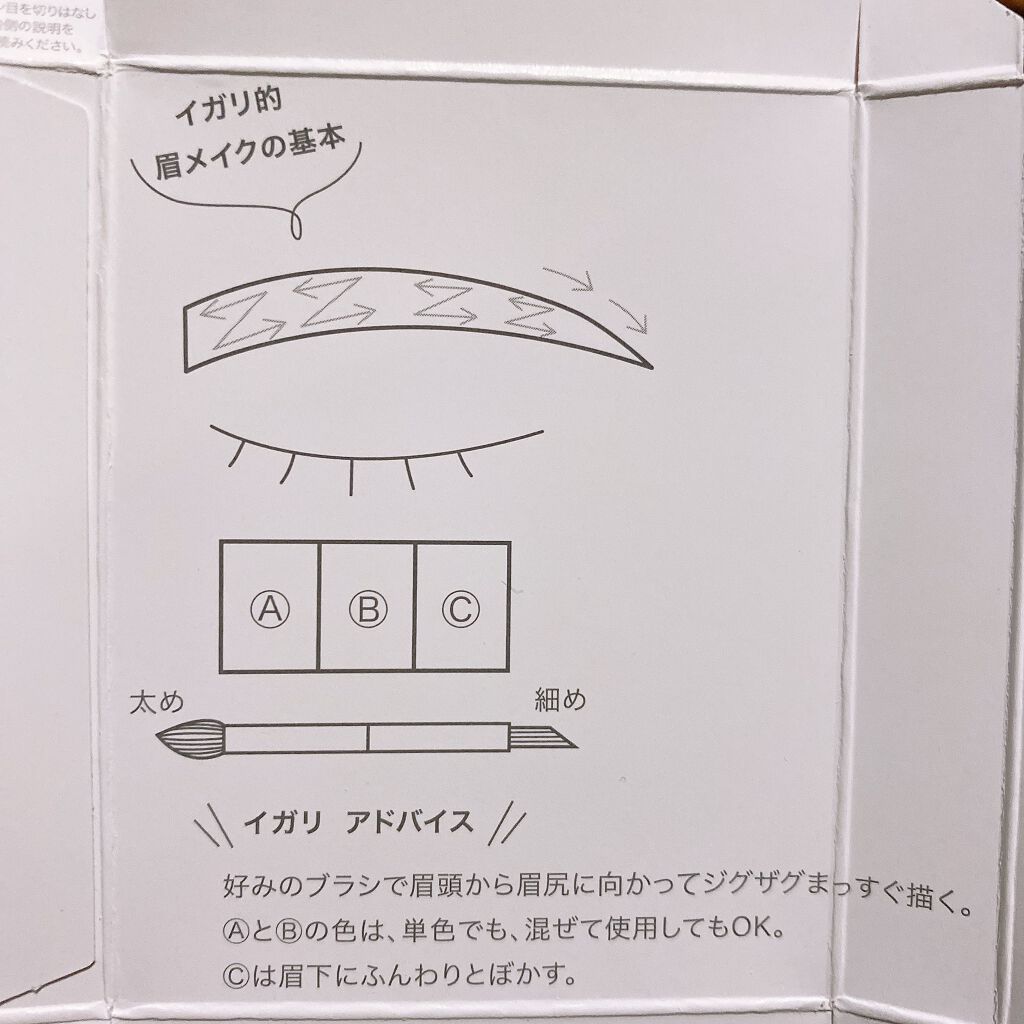 ン目を切りはなし
側の説明を
読みください。
イガリ的
眉メイクの基本
Ⓐ Ⓑ Ⓒ
太め 細め
イガリ アドバイス
好みのブラシで眉頭から眉尻に向かってジグザグまっすぐ描く。
ⒶとⒷの色は、単色でも、混ぜて使用してもOK。
Ⓒは眉下にふんわりとぼかす。